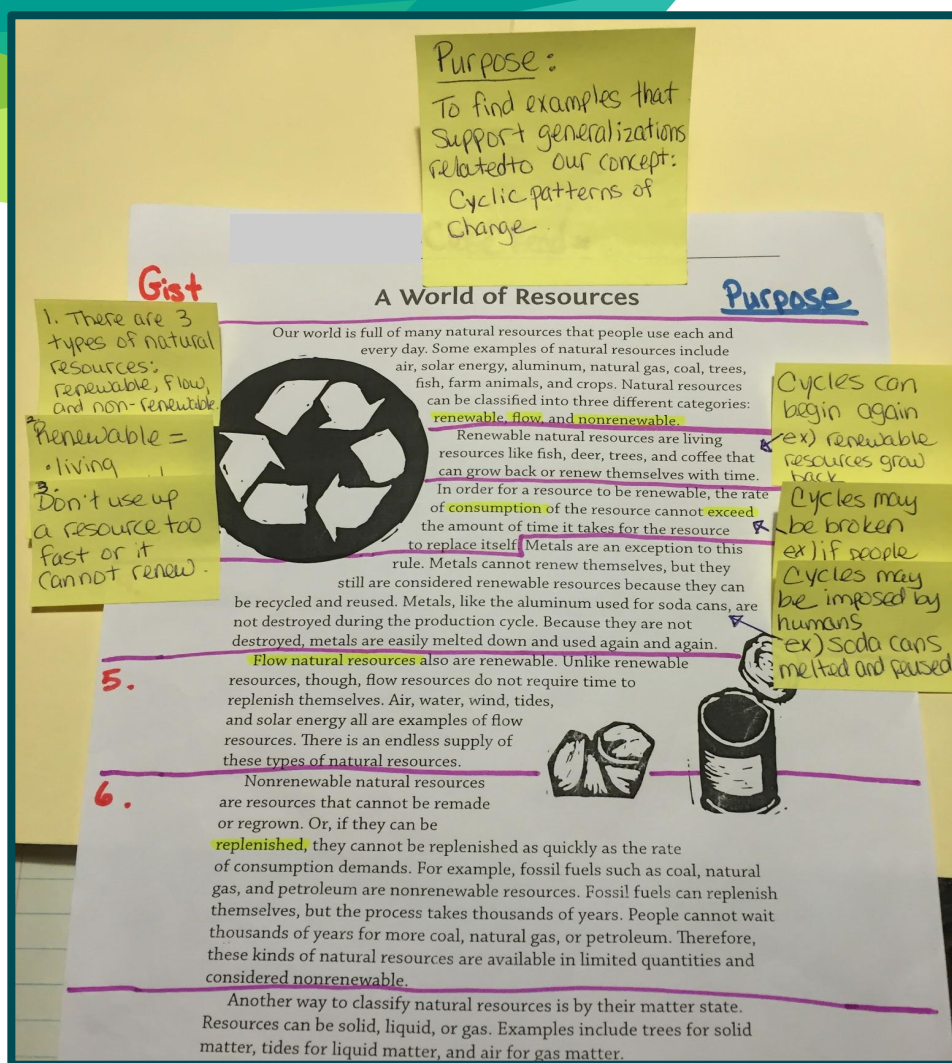 Purpose:
To find examples that
support generalizations
related to our concept:
Cyclic patterns of
change.
Gist
A World of Resources
Purpose
1. There are 3
types of natural
resources:
renewable, flow,
and non-renewable.
2. Renewable =
• living
3.
Don't use up
a resource too
fast or it
cannot renew.
Our world is full of many natural resources that people use each and
every day. Some examples of natural resources include
air, solar energy, aluminum, natural gas, coal, trees,
fish, farm animals, and crops. Natural resources
can be classified into three different categories:
renewable, flow, and nonrenewable.
Renewable natural resources are living
resources like fish, deer, trees, and coffee that
can grow back or renew themselves with time.
In order for a resource to be renewable, the rate
of consumption of the resource cannot exceed
the amount of time it takes for the resource
to replace itself. Metals are an exception to this
rule. Metals cannot renew themselves, but they
still are considered renewable resources because they can
be recycled and reused. Metals, like the aluminum used for soda cans, are
not destroyed during the production cycle. Because they are not
destroyed, metals are easily melted down and used again and again.
Cycles can
begin again
ex) renewable
resources grow
back
Cycles may
be broken
ex) if people
Cycles may
be imposed by
humans
ex) soda cans
melted and reused
5.
Flow natural resources also are renewable. Unlike renewable
resources, though, flow resources do not require time to
replenish themselves. Air, water, wind, tides,
and solar energy all are examples of flow
resources. There is an endless supply of
these types of natural resources.
6.
Nonrenewable natural resources
are resources that cannot be remade
or regrown. Or, if they can be
replenished, they cannot be replenished as quickly as the rate
of consumption demands. For example, fossil fuels such as coal, natural
gas, and petroleum are nonrenewable resources. Fossil fuels can replenish
themselves, but the process takes thousands of years. People cannot wait
thousands of years for more coal, natural gas, or petroleum. Therefore,
these kinds of natural resources are available in limited quantities and
considered nonrenewable.
Another way to classify natural resources is by their matter state.
Resources can be solid, liquid, or gas. Examples include trees for solid
matter, tides for liquid matter, and air for gas matter.